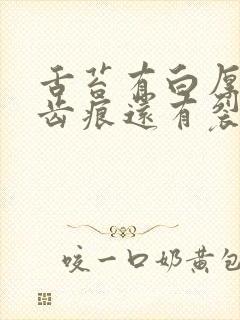 舌苔有白厚
齿痕還有裂
咬一口奶黄包